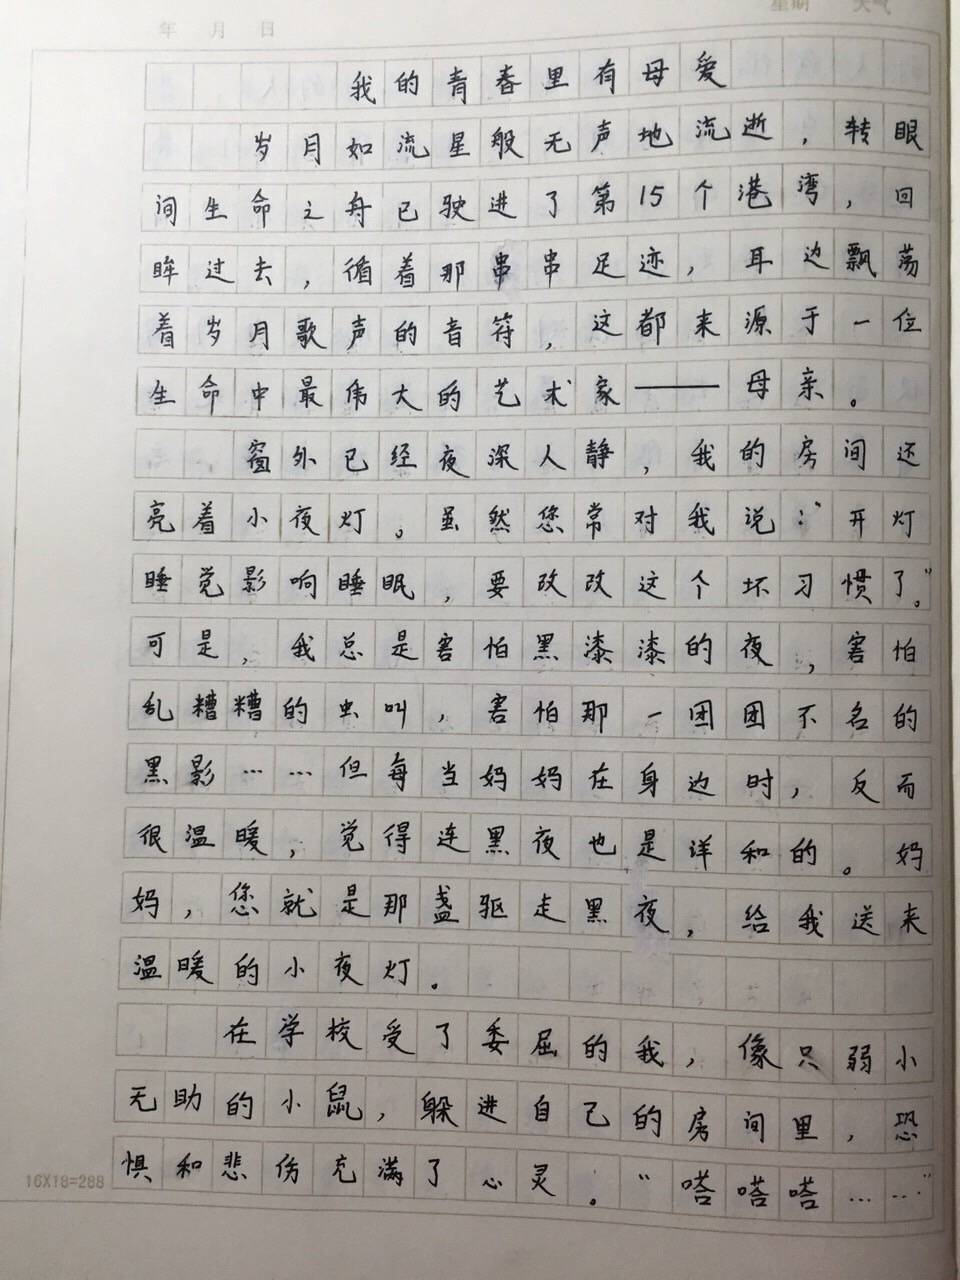 年 月 日 星期 天气
我的青春里有母爱
岁月如流星般无声地流逝，转眼
间生命之舟已驶进了第15个港湾，回
眸过去，循着那串串足迹，耳边飘荡
着岁月歌声的音符，这都来源于一位
生命中最伟大的艺术家——母亲。
窗外已经夜深人静，我的房间还
亮着小夜灯。虽然您常对我说：“开灯
睡觉影响睡眠，要改改这个坏习惯了。”
可是，我总是害怕黑漆漆的夜，害怕
乱糟糟的虫叫，害怕那一团团不名的
黑影……但每当妈妈在身边时，反而
很温暖，觉得连黑夜也是洋和的。妈
妈，您就是那盏驱走黑夜，给我送来
温暖的小夜灯。
在学校受了委屈的我，像只弱小
无助的小鼠，躲进自己的房间里，恐
惧和悲伤充满了心灵。“嗒嗒嗒……”
16X18=288